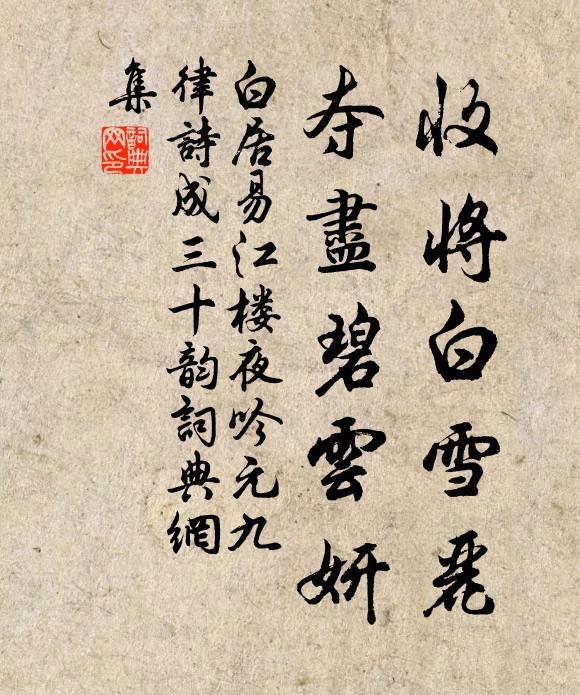 收將白雪麗
夺盡碧雲妍
白居易江楼夜吟元九
律詩成三十韵詞典網
集
詞典
网印